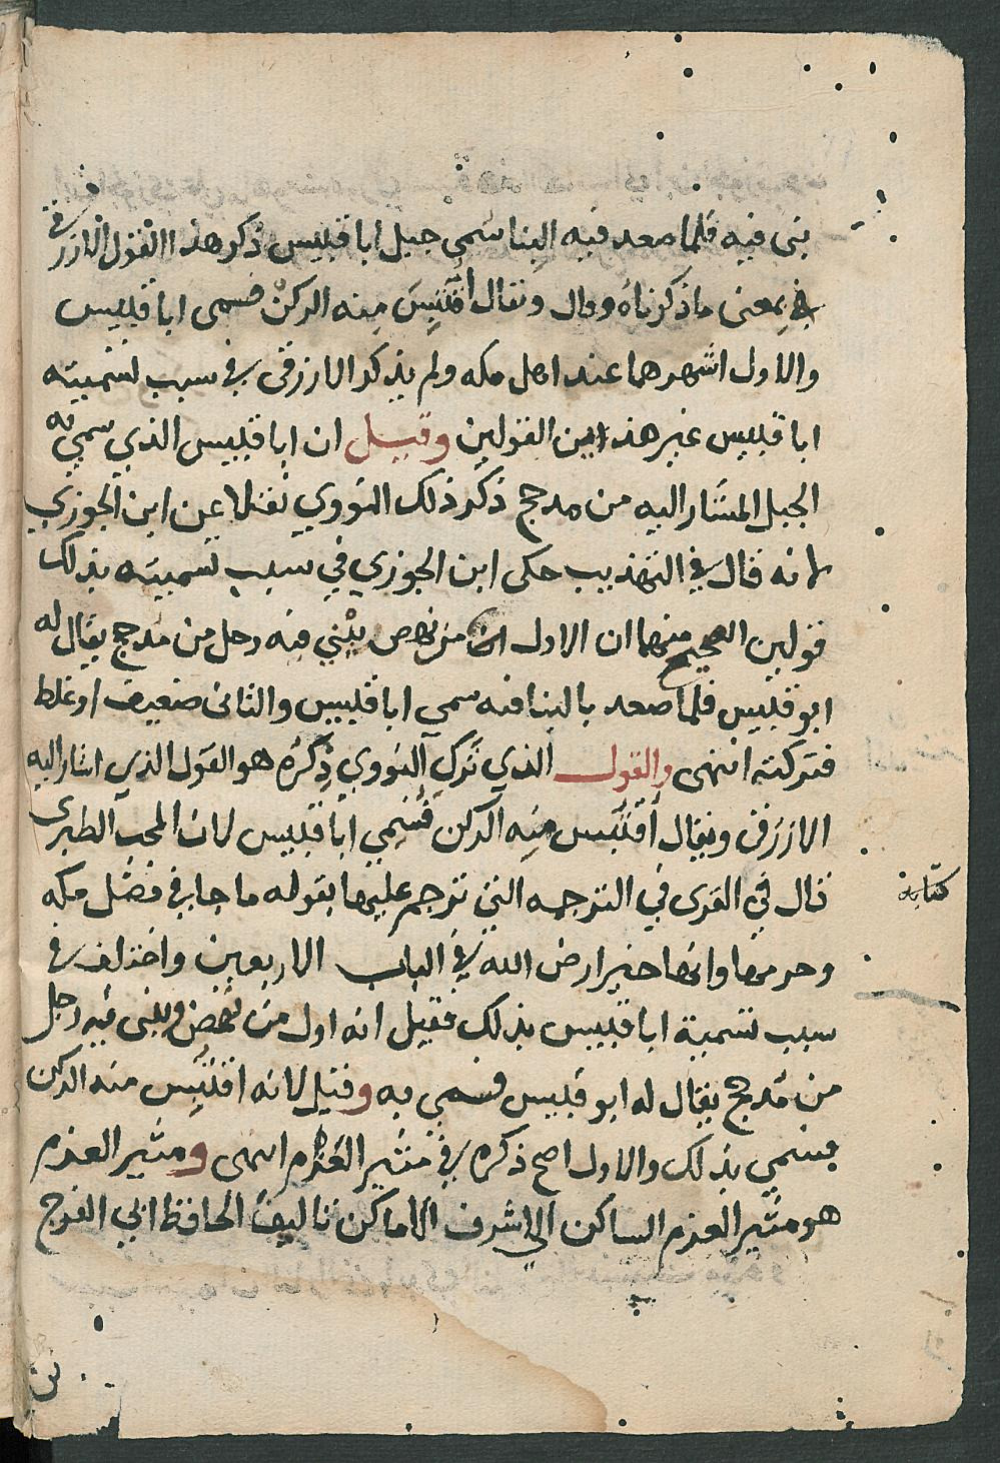 بنى فيه فلما صعد فيه البنا سمي جبل ابا قبيس ذكر هذا القول الازرقي
في معنى ما ذكرناه وقال ويقال اقتبس منه الركن فسمى ابا قبيس
والاول اشهرهما عند اهل مكه ولم يذكر الازرقى في سبب تسميته
ابا قبيس غير هذين القولين وقيل ان ابا قبيس الذي سمي به
الجبل المشار اليه من مدحج ذكر ذلك النووي نقلا عن ابن الجوزي
لانه قال في التهذيب حكى ابن الجوزي في سبب تسميته بذلك
قولين الصحيح منهما ان الاول من نهض يبني فيه رجل من مدحج يقال له
ابو قبيس فلما صعد بالبنا فيه سمي ابا قبيس والثانى ضعيف او غلط
فتركته انتهى والقول الذي ترك النووي ذكره هو القول الذي اشار اليه
الازرقى ويقال اقتبس منه الركن فسمي ابا قبيس لان المحب الطبرى
قال في القرى في الترجمه التي ترجم عليها بقوله ما جا في فضل مكه
وحرمها وانها خير ارض الله في الباب الاربعين واختلف في
سبب تسمية ابا قبيس بذلك فقيل انه اول من نهض وبنى فيه رجل
من مدحج يقال له ابو قبيس فسمي به وقيل لانه اقتبس منه الركن
فسمي بذلك والاول اصح ذكره في مثير الغرام انتهى ومثير العزم
هو مثير العزم الساكن الي اشرف الاماكن تاليف الحافظ ابي الفرج
كتابه